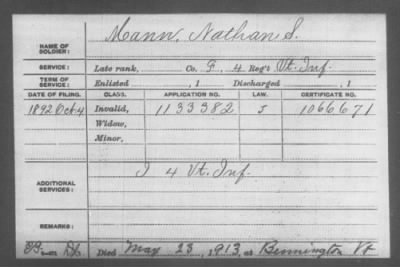 Mann, Nathan S.
NAME OF SOLDIER:
SERVICE: Late rank, Co. G, 4 Reg't Vt. Inf.
TERM OF SERVICE: Enlisted , 1 Discharged , 1
DATE OF FILING. CLASS. APPLICATION NO. LAW. CERTIFICATE NO.
1892 Oct. 4 Invalid, 1133382 1066671
Widow,
Minor,
ADDITIONAL SERVICES: I 4 Vt. Inf.
REMARKS:
Died May 23, 1913, at Bennington Vt